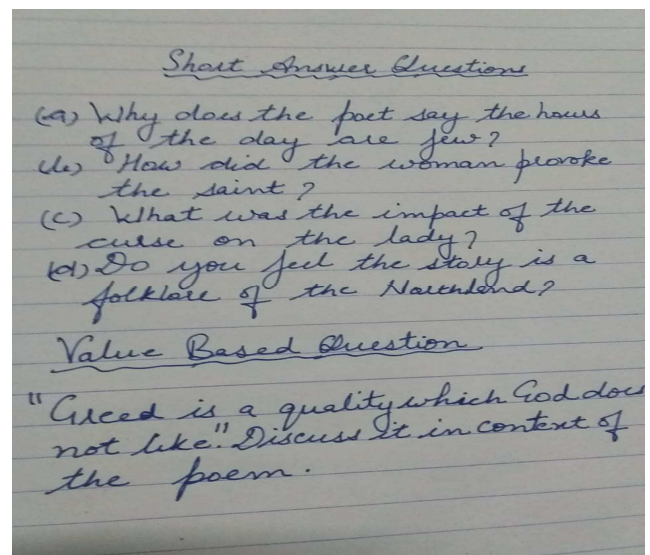 Short Answer Questions
(a) Why does the poet say the hours
of the day are few?
(b) How did the woman provoke
the saint?
(c) What was the impact of the
curse on the lady?
(d) Do you feel the story is a
folklore of the Northland?
Value Based Question
"Greed is a quality which God does
not like". Discuss it in context of
the poem.